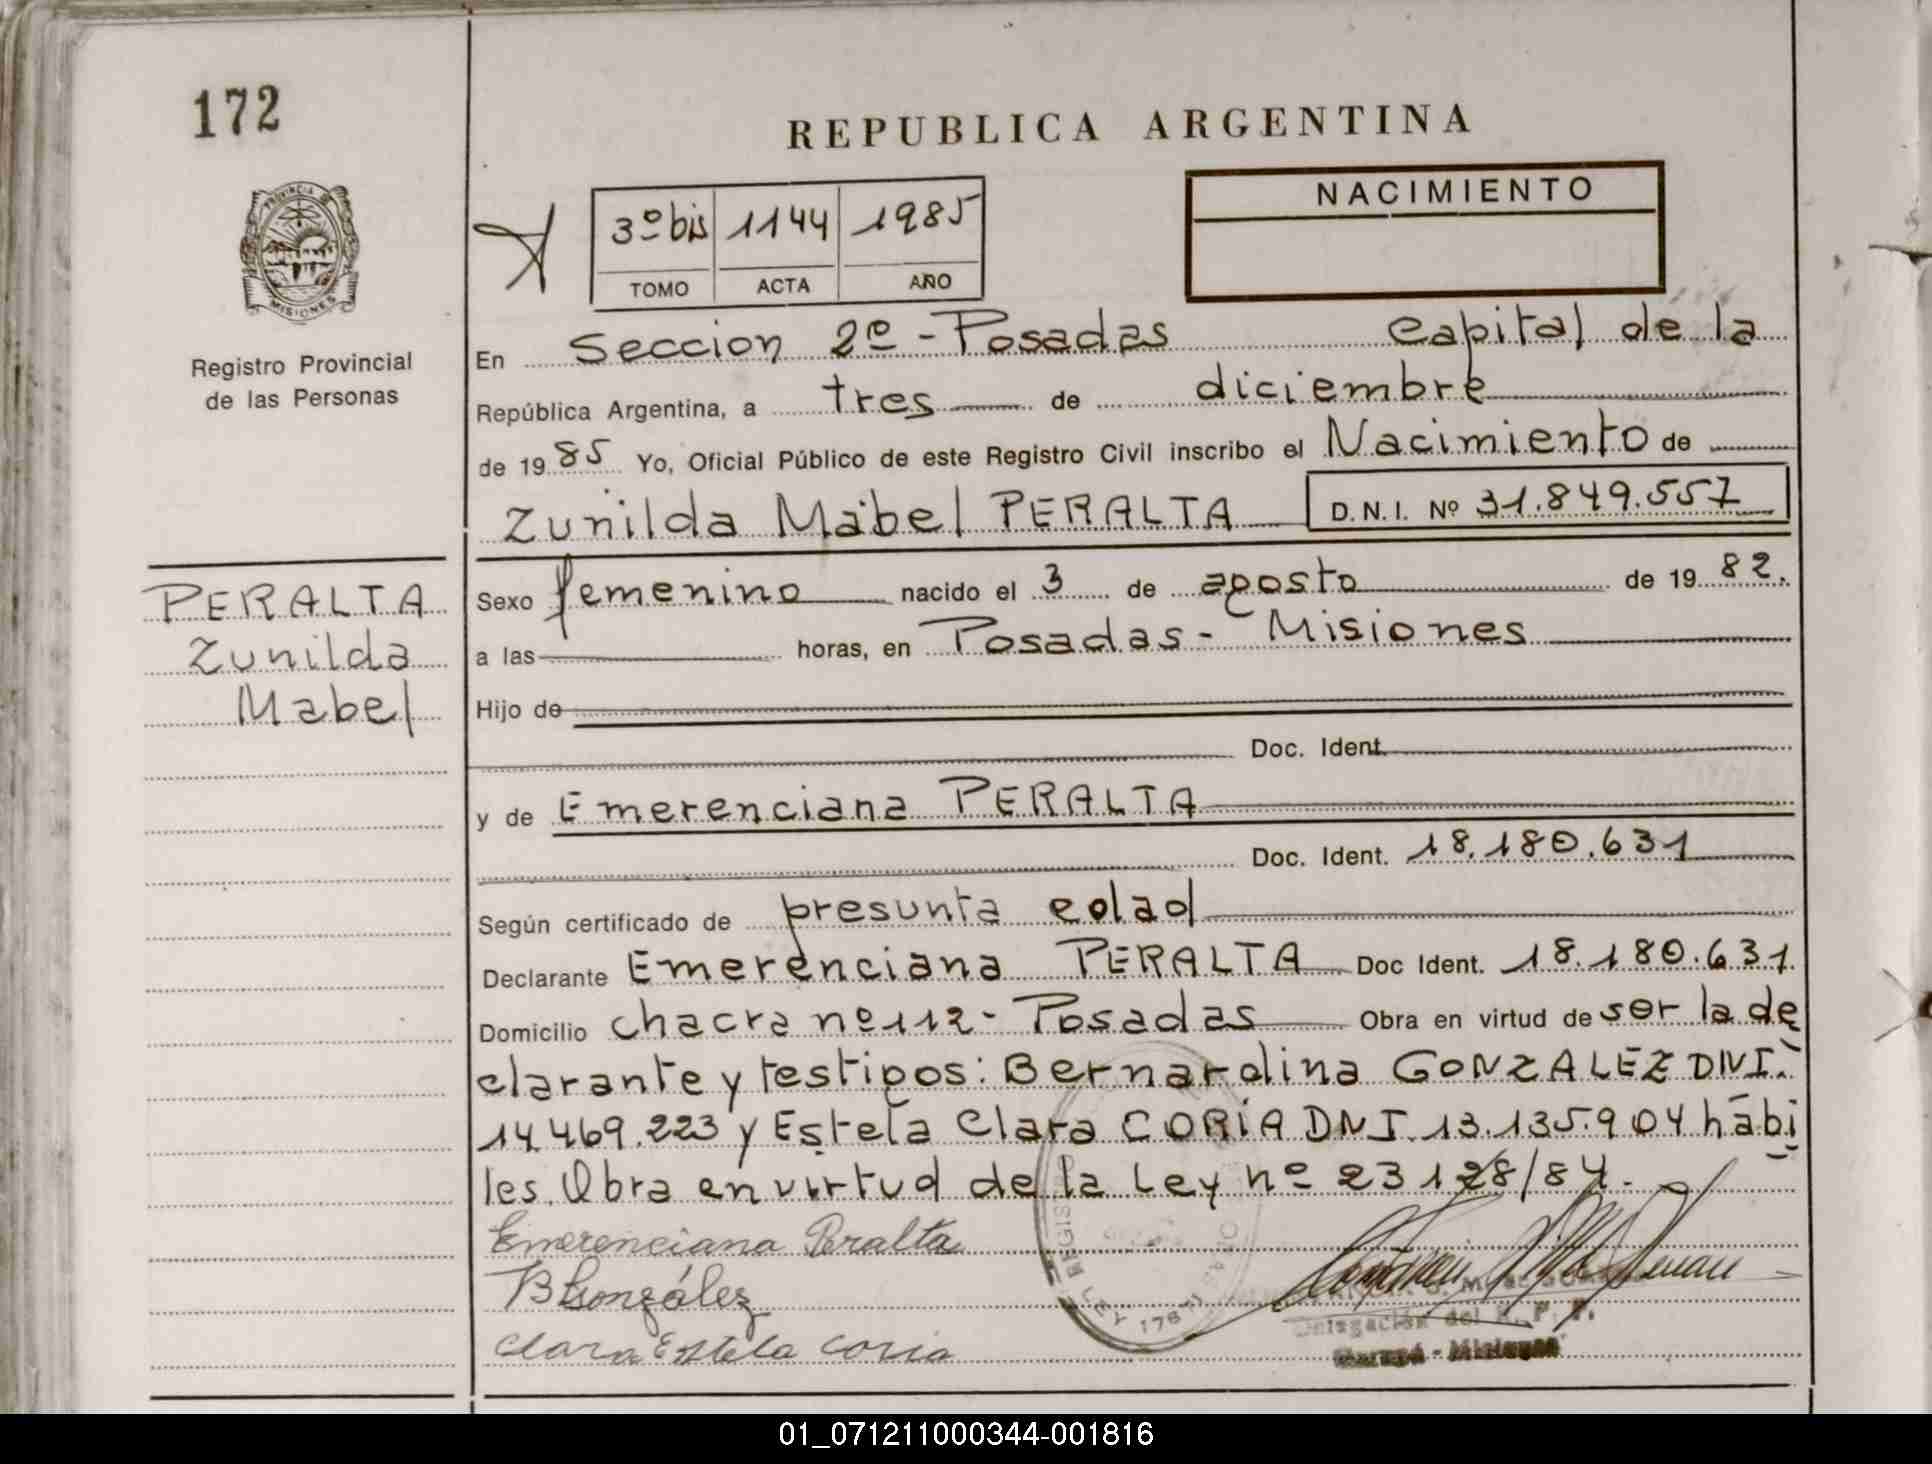 172
REPUBLICA ARGENTINA
PROVINCIA DE
MISIONES
Registro Provincial
de las Personas
3º bis 1144 1985
TOMO ACTA AÑO
NACIMIENTO
En Seccion 2º - Posadas Capital de la
República Argentina, a tres de diciembre
de 1985 Yo, Oficial Público de este Registro Civil inscribo el Nacimiento de
Zunilda Mabel PERALTA D.N.I. Nº 31.849.557
PERALTA
Zunilda
Mabel
Sexo femenino nacido el 3 de agosto de 1982.
a las horas, en Posadas - Misiones
Hijo de
Doc. Ident.
y de Emerenciana PERALTA
Doc. Ident. 18.180.631
Según certificado de presunta edad
Declarante Emerenciana PERALTA Doc Ident. 18.180.631.
Domicilio chacra nº 112 - Posadas Obra en virtud de ser la de
clarante y testigos: Bernardina GONZALEZ DNI.
14.469.223 y Estela Clara CORIA DNI. 13.135.904 hábi
les. Obra en virtud de la Ley nº 23128/84.
Emerenciana Peralta
B González
Clara Estela Coria
Delegación del R. P. P.
Misiones
01_071211000344-001816